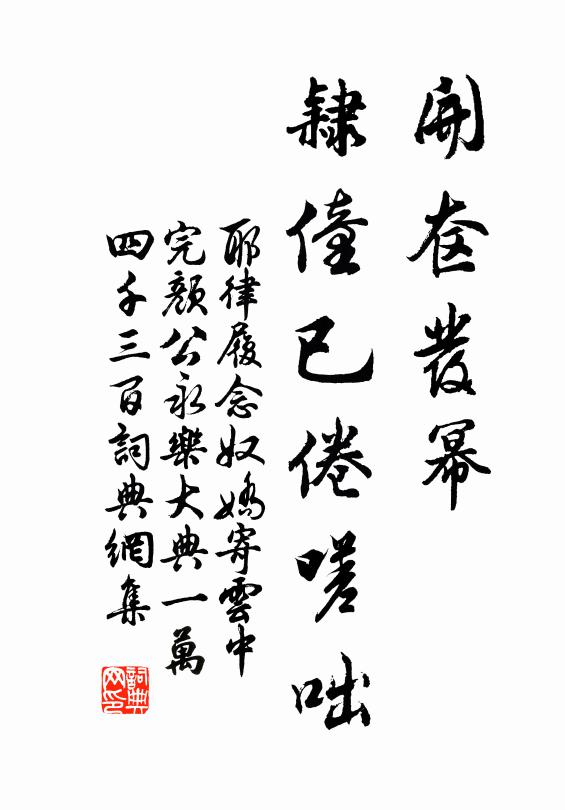 開奁發幂
隸僮已倦嗟咄
耶律履念奴嬌寄雲中
完顏公永樂大典一萬
四千三百詞典網集
詞典网印